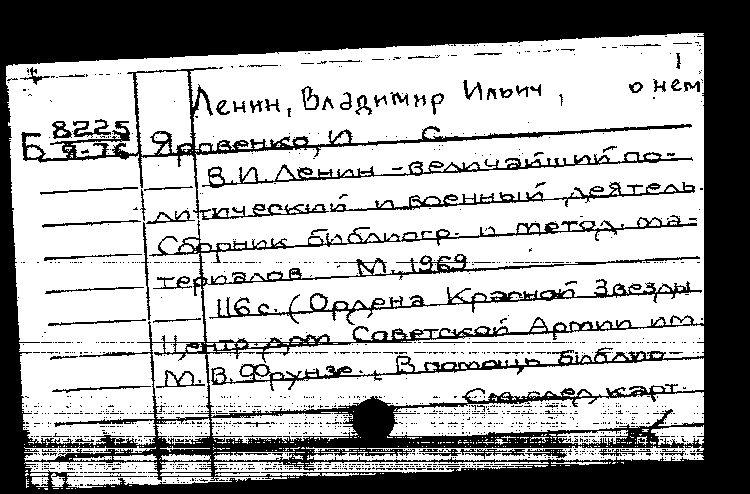 1
Ленин, Владимир Ильич, о нем
Б 8225
Я-76
Яровенко, И С.
В.И. Ленин - величайший по-
литический и военный деятель.
Сборник библиогр. и метод. ма-
териалов. М., 1969
116 с. (Ордена Красной Звезды
Центр. дом Советской Армии им.
М.В. Фрунзе. В помощь библио-
См. след. карт.